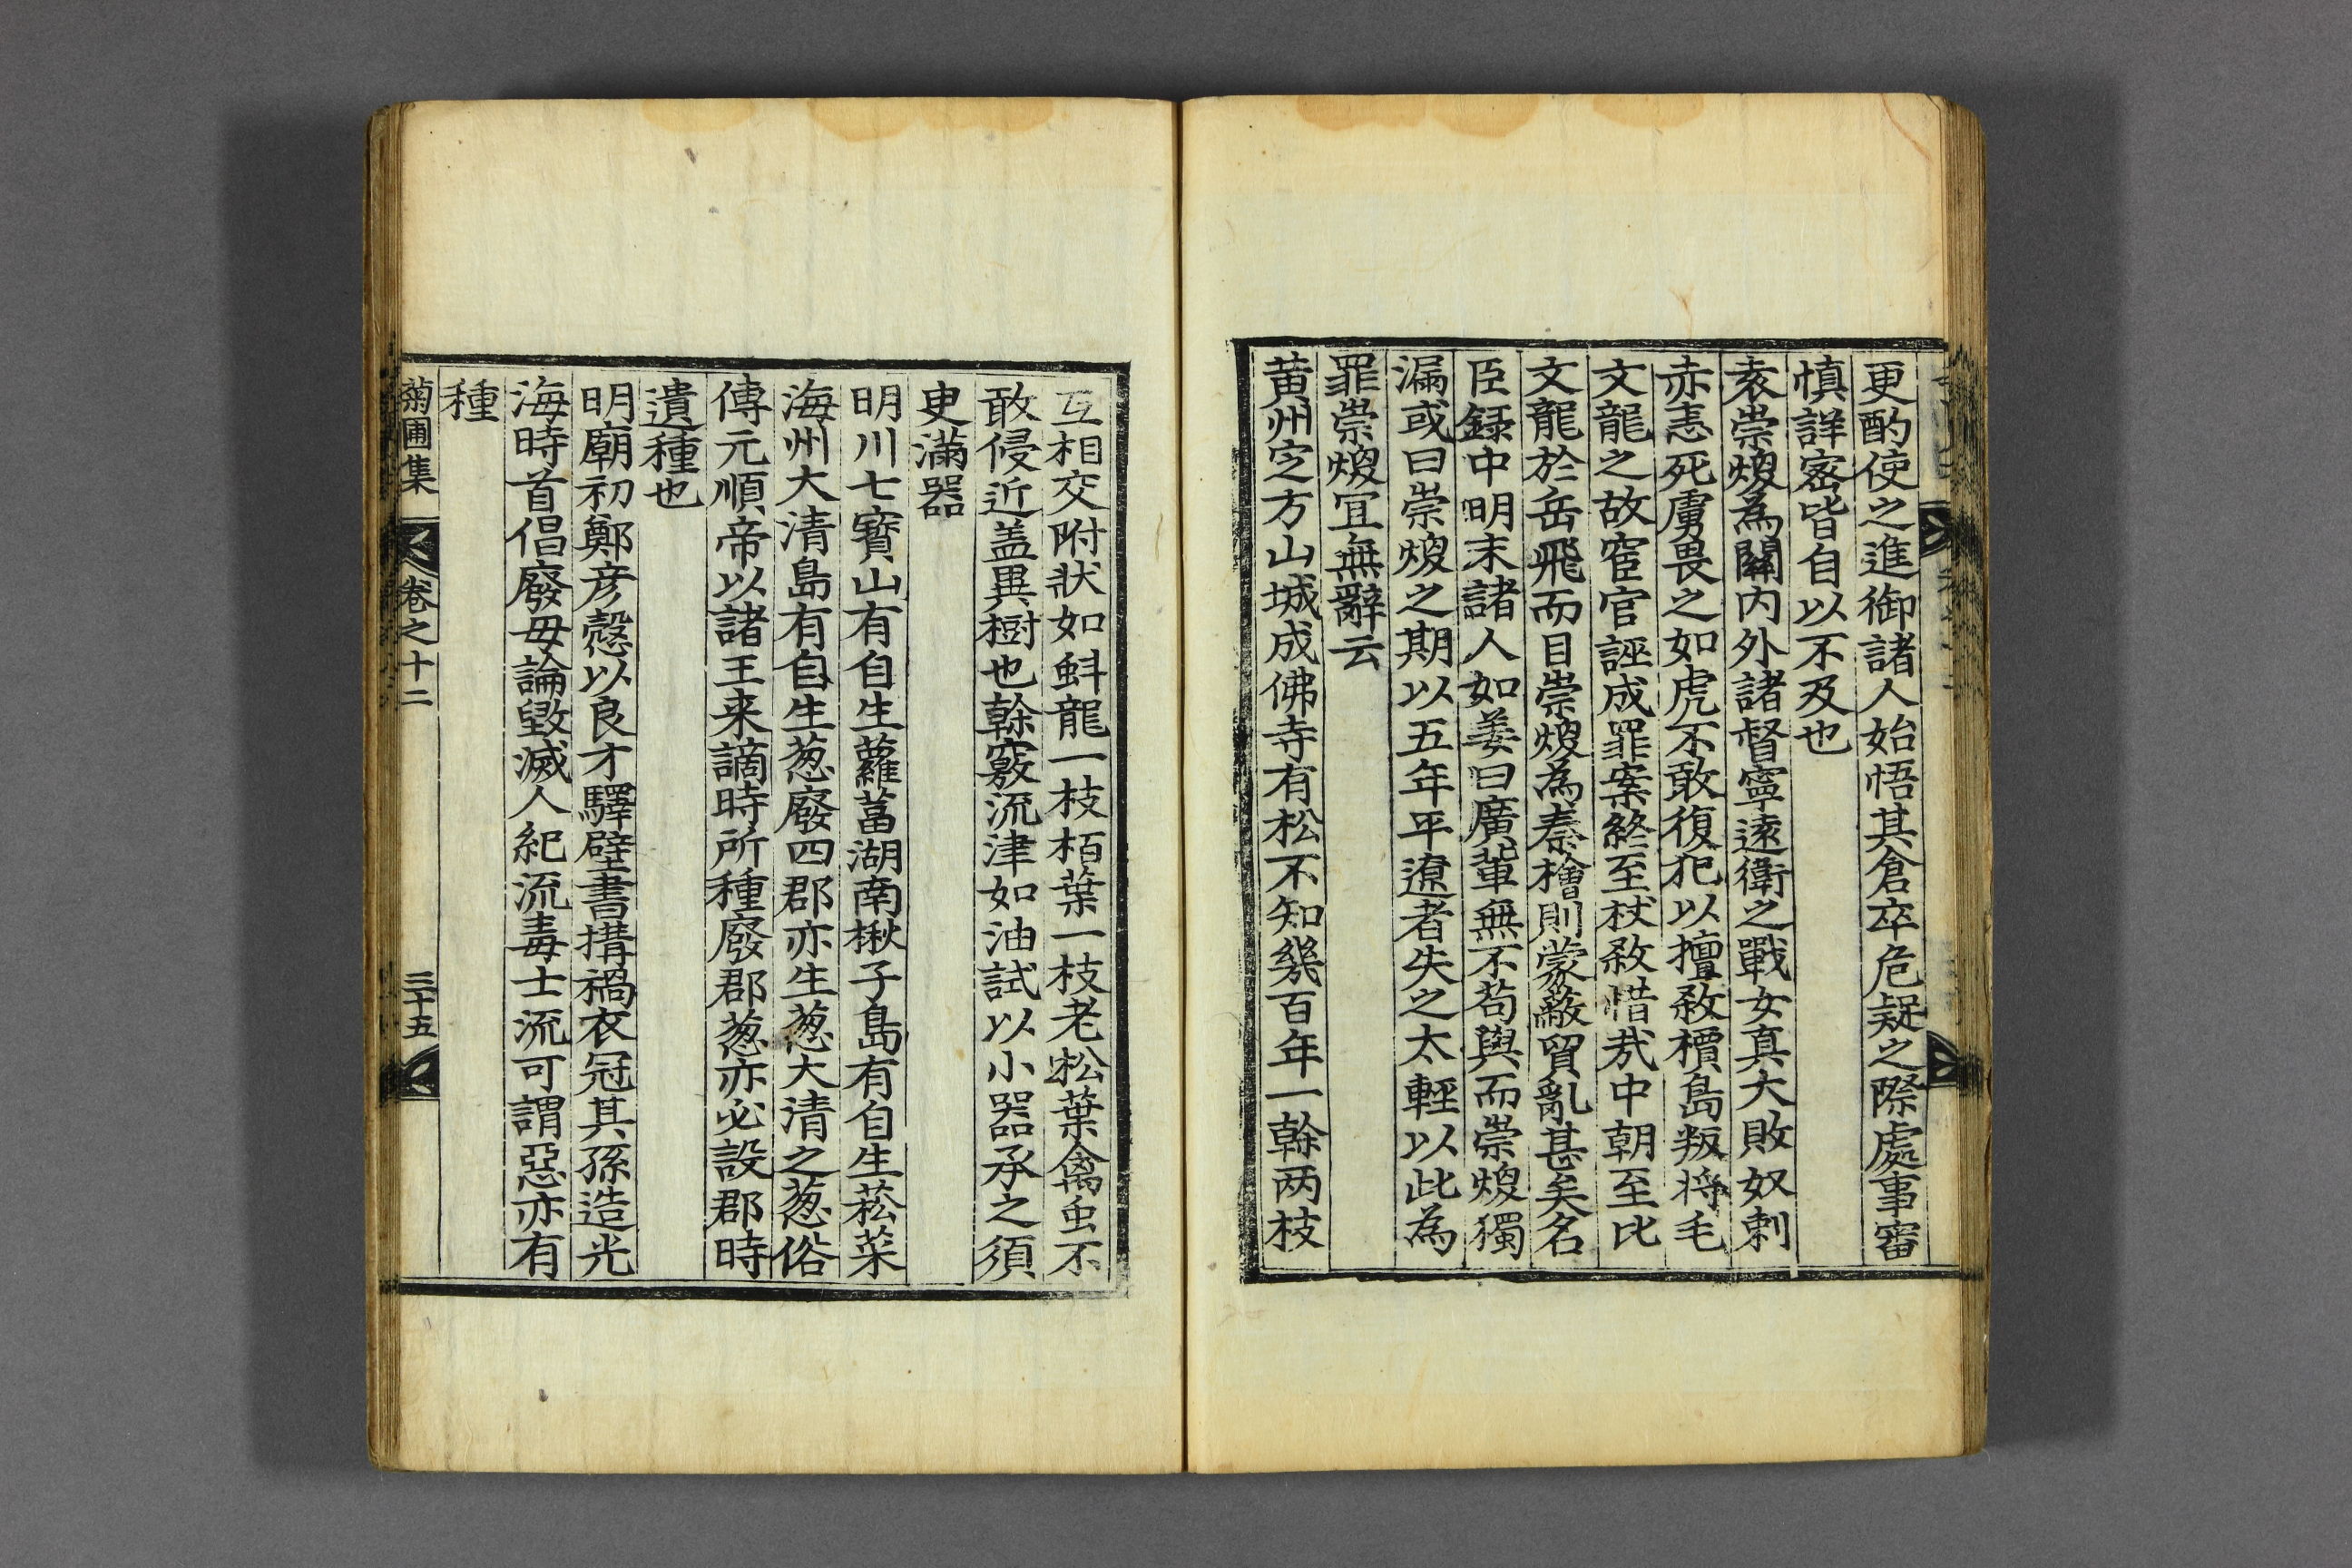 更酌使之進御諸人始悟其倉卒危疑之際處事審
慎詳宻皆自以不及也
袁崇煥為關内外諸督寧遠衛之戰女真大敗奴剌
赤恚死虜畏之如虎不敢復犯以擅殺椵島叛将毛
文龍之故宦官誣成罪案終至杖殺惜㢤中朝至比
文龍於岳飛而目崇煥為秦檜則蒙蔽貿亂甚矣名
臣録中明末諸人如姜曰廣軰無不苟與而崇煥獨
漏或曰崇煥之期以五年平遼者失之太輕以此為
罪崇煥宜無辭云
黄州㝎方山城成佛寺有松不知幾百年一榦两枝
互相交附狀如蚪龍一枝栢葉一枝老松葉禽虫不
敢侵近盖異樹也榦竅流津如油試以小器承之須
㬰滿器
明川七寶山有自生蘿葍湖南楸子島有自生菘菜
海州大清島有自生葱廢四郡亦生葱大清之葱俗
傳元順帝以諸王来謫時所種廢郡葱亦必設郡時
遺種也
明廟初鄭彦慤以良才驛壁書搆禍衣冠其孫造光
海時首倡廢毋論毀滅人紀流毒士流可謂惡亦有
種
菊圃集
卷之十二
三十五